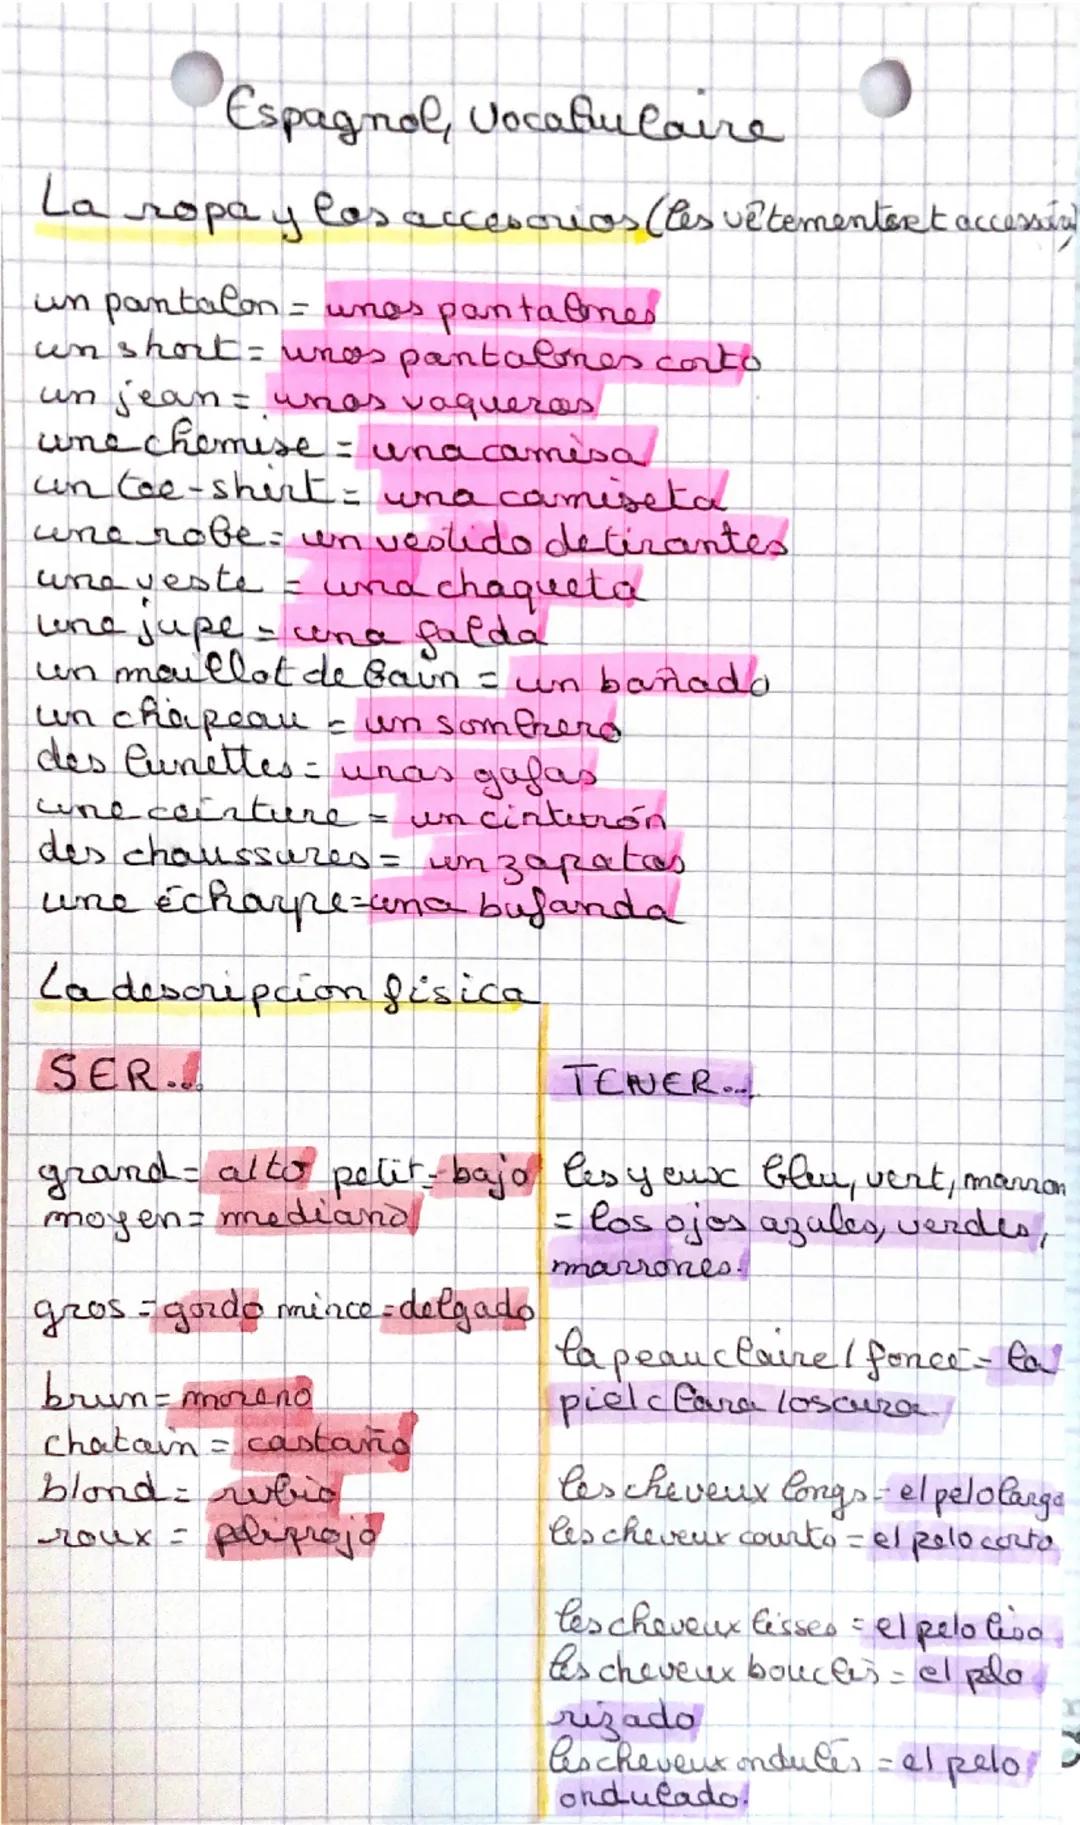 Espagnol, Vocabulaire
La ropa y los accesorios (les vêtements et accessoi
un pantalon = unos pantalones
un short = unos pantalones corto
un jean = unos vaqueros
une chemise = una camisa
un tee-shirt = una camiseta
une robe = un vestido de tirantes
une veste = una chaqueta
une jupe = una falda
un maillot de bain = un bañado
un chapeau = un sombrero
des lunettes = unas gafas
une ceinture = un cinturón
des chaussures = un zapatos
une écharpe = una bufanda
La descripcion física
SER...
grand = alto petit = bajo
moyen = mediano
gros = gordo mince = delgado
brun = moreno
chatain = castaño
blond = rubio
roux = pelirrojo
TENER...
les yeux bleu, vert, marron
= los ojos azules, verdes,
marrones.
la peau claire / foncé = la
piel clara / oscura
les cheveux longs = el pelo largo
les cheveux courts = el pelo corto
les cheveux lisses = el pelo liso
les cheveux bouclés = el pelo
rizado
les cheveux ondulés = el pelo
ondulado.